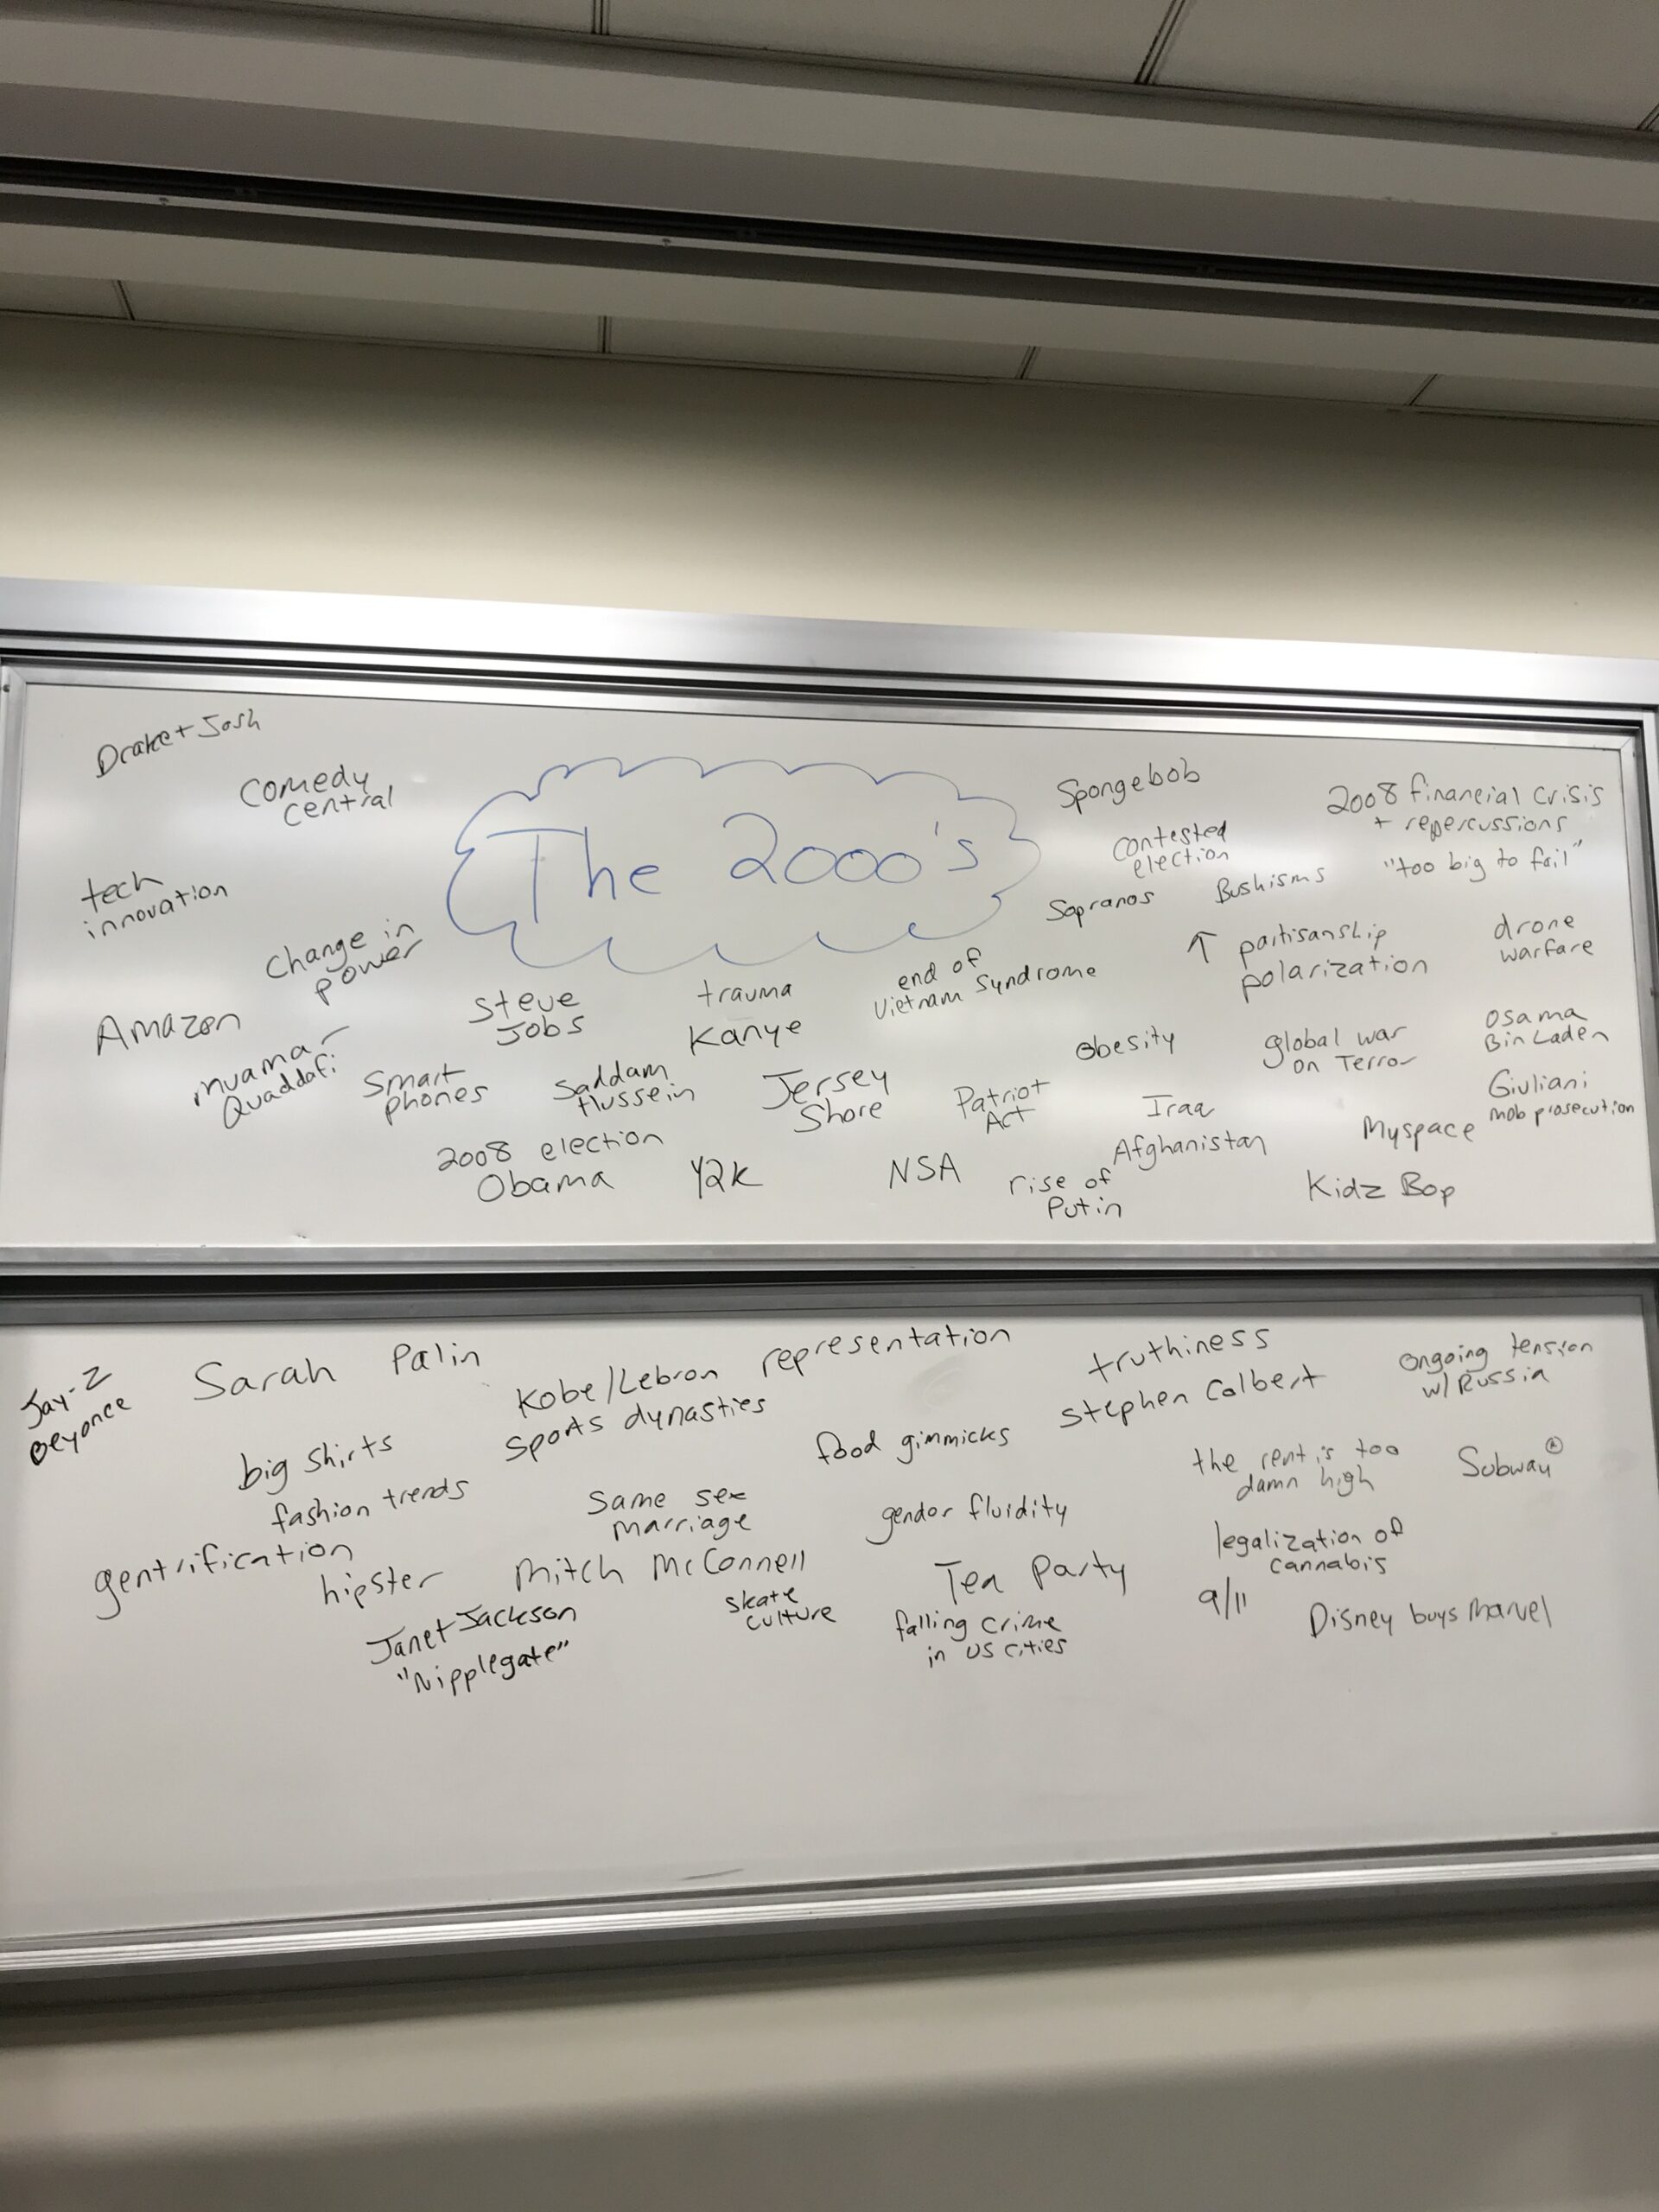 Drake + Josh
Comedy
Central
The 2000's
Spongebob
2008 financial crisis
+ repercussions
"too big to fail"
contested
election
Sopranos
Bushisms
tech
innovation
Change in
power
↑ partisanship
polarization
drone
warfare
end of
Vietnam Syndrome
trauma
Kanye
Steve
Jobs
Amazon
Muamar
Quaddafi
Smart
phones
Saddam
Hussein
Jersey
Shore
Patriot
Act
Obesity
global war
on Terror
Osama
Bin Laden
Giuliani
mob prosecution
Iraq
Afghanistan
Myspace
2008 election
Obama
Y2K
NSA
rise of
Putin
Kidz Bop
Jay-Z
Beyonce
Sarah Palin
Kobe/Lebron
sports dynasties
representation
truthiness
Stephen Colbert
ongoing tension
w/ Russia
big shirts
fashion trends
food gimmicks
the rent is too
damn high
Subway®
same sex
marriage
gender fluidity
legalization of
cannabis
gentrification
hipster
Mitch McConnell
skate
culture
Tea Party
9/11
Disney buys Marvel
Janet Jackson
"Nipplegate"
falling crime
in US cities